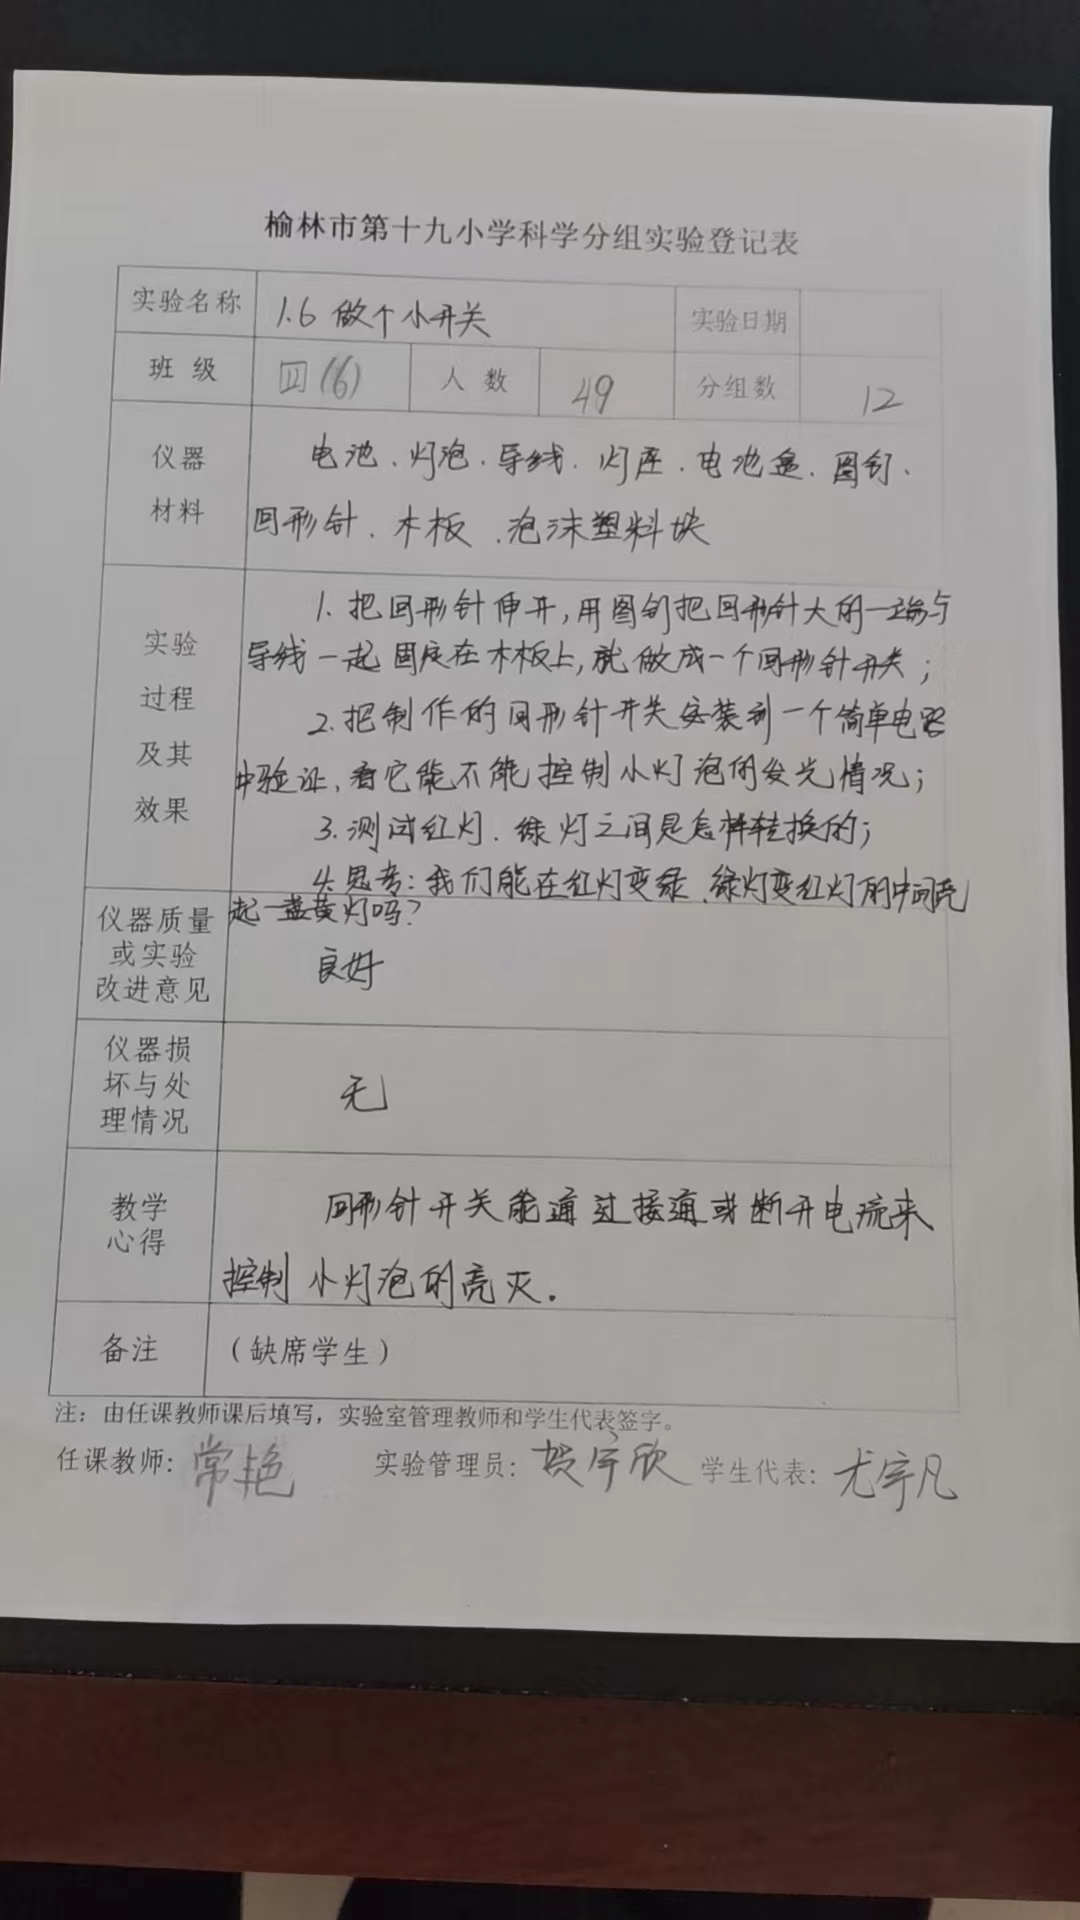 榆林市第十九小学科学分组实验登记表
实验名称 1.6 做个小开关 实验日期
班级 四(6) 人数 49 分组数 12
仪器
材料
电池、灯泡、导线、灯座、电池盒、图钉、
回形针、木板、泡沫塑料块
实验
过程
及其
效果
1.把回形针伸开,用图钉把回形针大的一端与
导线一起固定在木板上,就做成一个回形针开关;
2.把制作的回形针开关安装到一个简单电路
中验证,看它能不能控制小灯泡的发光情况;
3.测试红灯、绿灯之间是怎样转换的;
4.思考:我们能在红灯变绿、绿灯变红灯的中间亮
起一盏黄灯吗?
仪器质量
或实验
改进意见
良好
仪器损
坏与处
理情况
无
教学
心得
回形针开关能通过接通或断开电流来
控制小灯泡的亮灭.
备注 (缺席学生)
注:由任课教师课后填写,实验室管理教师和学生代表签字。
任课教师:常艳 实验管理员:贺宇欣 学生代表:尤宇凡